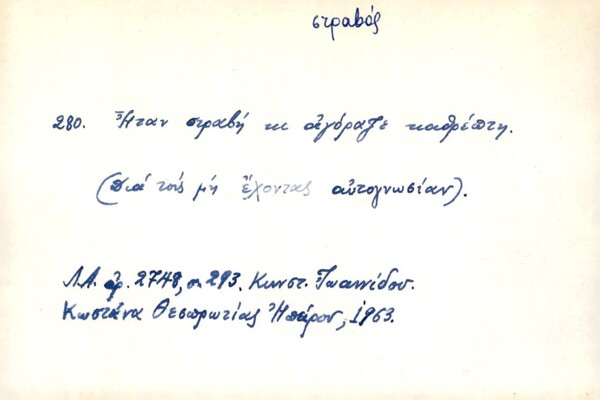 στραβός
280. Ἦταν στραβή κι ἀγόραζε καθρέπτη.
(Διά τούς μή ἔχοντας αὐτογνωσίαν).
Λ.Α. ἀρ. 2748, σ. 293. Κωνστ. Ἰωαννίδου.
Κωστάνα Θεσπρωτίας Ἠπείρου, 1963.